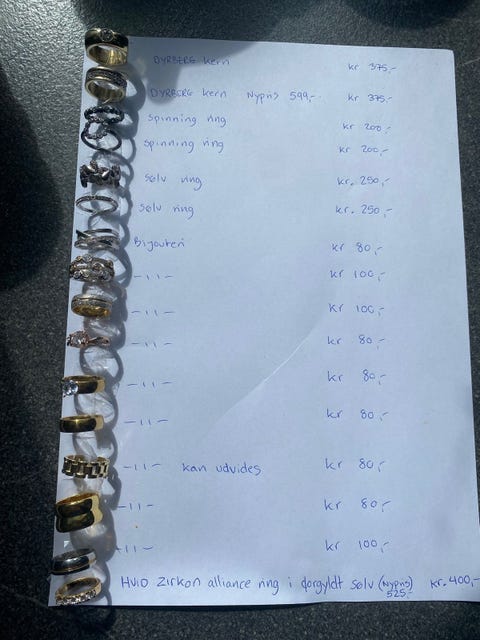 DYRBERG kern kr 375,-
DYRBERG kern Nypris 599,- kr 375,-
spinning ring kr 200,-
spinning ring kr 200,-
Sølv ring kr. 250,-
Sølv ring kr. 250,-
Bijouteri kr 80,-
-11- kr 100,-
-11- kr 100,-
-11- kr 80,-
-11- kr 80,-
-11- kr 80,-
-11- kan udvides kr 80,-
-11- kr 80,-
-11- kr 100,-
HVID Zirkon alliance ring i forgyldt sølv (Nypris 525,-) kr. 400,-